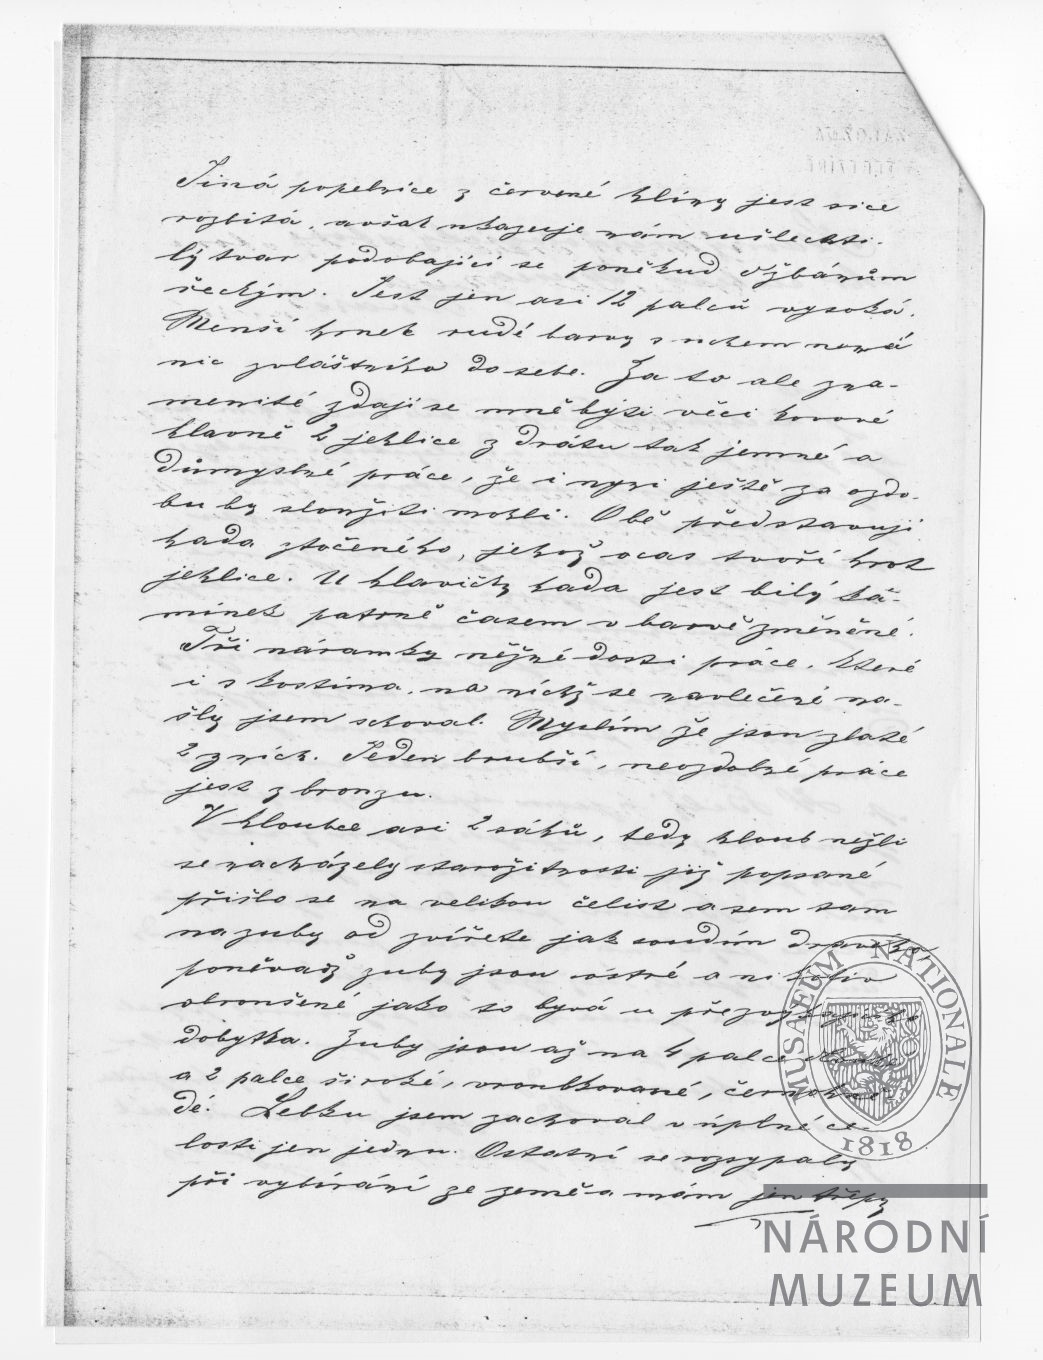 Jiná popelnice z červené hlíny jest sice
rozbitá, avšak ukazuje nám ušlechti-
lý tvar podobající se poněkud džbánům
řeckým. Jest jen asi 12 palců vysoká.
Menší hrnek rudé barvy s uchem nemá
nic zvláštního do sebe. Za to ale zna-
menité zdají se mně býti věci kovové
hlavně 2 jehlice z drátu tak jemné a
důmyslné práce, že i nyní ještě za ozdo-
bu by sloužiti mohli. Obě představují
hada stočeného, jehož ocas tvoří hrot
jehlice. U hlavičky hada jest bílý ká-
mínek patrně časem v barvě změněné.
Tři náramky něžné dosti práce, které
i s kostima, na nichž se navlečené na-
šly jsem schoval. Myslím že jsou zlaté
2 z nich. Jeden hrubší, neozdobné práce
jest z bronzu.
V hloubce asi 2 sáhů, tedy hloub nežli
se nacházely starožitnosti již popsané
přišlo se na velikou čelist a sem tam
na zuby od zvířete jak soudím dravého,
poněvadž zuby jsou ostré a nikoliv
obroušené jako to bývá u přežvýkavého
dobytka. Zuby jsou až na 4 palce dlouhé
a 2 palce široké, vroubkované, černohně-
dé. Lebku jsem zachoval v úplné ce-
losti jen jednu. Ostatní se rozsypaly
při vybírání ze země a mám jen třepy
MUSAEUM NATIONALE
1818
NÁRODNÍ
MUZEUM